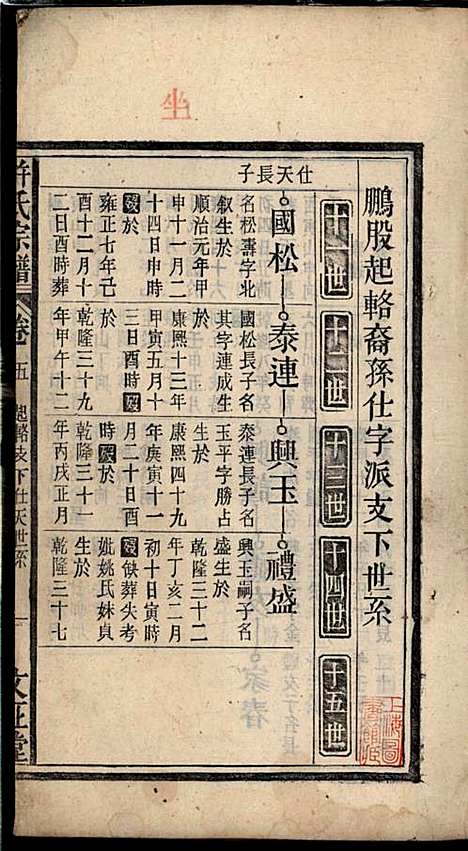 坐
鵬股起輅裔孫仕字派支下世系
十一世
十二世
十三世
十四世
十五世
上海圖書館藏
仕天長子
國松
泰連
興玉
禮盛
名松壽字北
叙生於
順治元年甲
申十一月二
十四日申時
歿於
雍正七年己
酉十二月十
二日酉時葬
國松長子名
其字連成生
於
康熙十三年
甲寅五月十
三日酉時歿
於
乾隆三十九
年甲午十二
泰連長子名
玉平字勝占
生於
康熙四十九
年庚寅十一
月二十日酉
時歿於
乾隆三十一
年丙戌正月
興玉嗣子名
盛生於
乾隆三十二
年丁亥二月
初十日寅時
歿缺葬失考
妣姚氏妹貞
生於
乾隆三十七
許氏宗譜
卷一五
起輅支下仕天世系
一
文正堂